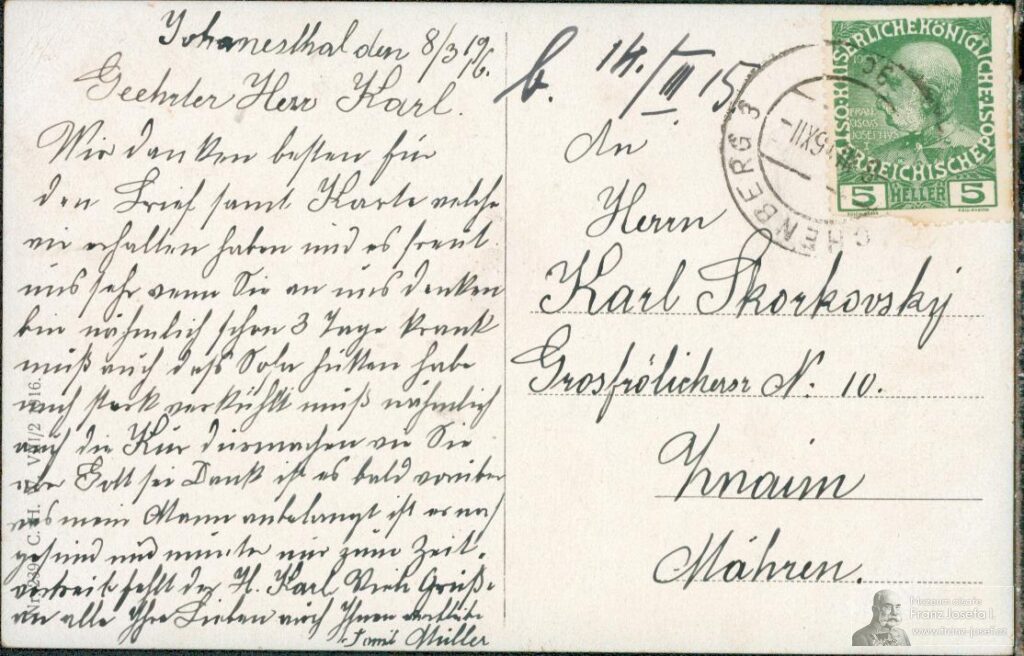 Johanesthal den 8/3 1916.
Geehrter Herr Karl.
Wir danken besten für
den Brief samt Karte welche
wir erhalten haben und es freut
uns sehr wenn Sie an uns denken
bin nähmlich schon 3 Tage krank
muß auch das Soln hütten habe
mich stark verkühlt muß nähmlich
auch die Kur durmachen wie Sie
aber Gott sei Dank ist es bald vorüber
was mein Mann anbelangt ist er noch
gesund und munter nur zum Zeit.
vertreib fehlt der H. Karl Viele Grüße
an alle Ihre Lieben auch Ihnen
Müller
b. 14./III 15
An
Herrn
Karl Skorkovský
Grosfrölicheror N. 10.
Znaim
Mähren.
CHENBERG 3
KAISERLICHE KÖNIGLICHE
ÖSTERREICHISCHE POST
5 HELLER 5
Muzeum císaře
Franz Josefa I.
www.franz-josef.cz